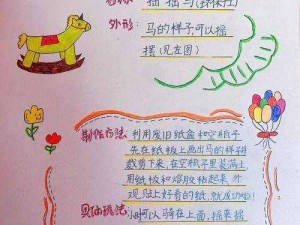 摇摇马(环保牡)
外形：马的样子可以摇
摇(见左图)
制作方法：利用废旧纸盒和空瓶子
先在纸板上画出马的样拼
裁剪下来，在空瓶子里装满土
用纸板和熔胶粘起来，外
观贴上好看的纸，就成功啦！
具体玩法：小时可以骑在上面，摇来摇